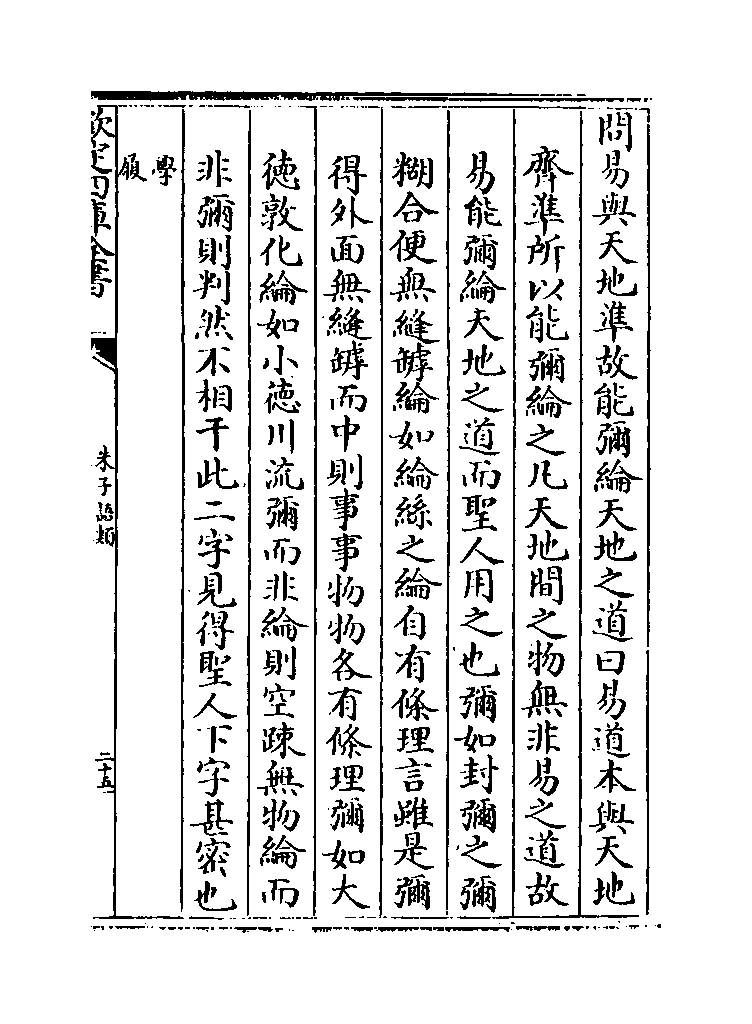 問易與天地準故能彌綸天地之道曰易道本與天地
齊準所以能彌綸之凡天地間之物無非易之道故
易能彌綸天地之道而聖人用之也彌如封彌之彌
糊合便無縫罅綸如綸絲之綸自有條理言雖是彌
得外面無縫罅而中則事事物物各有條理彌如大
徳敦化綸如小徳川流彌而非綸則空踈無物綸而
非彌則判然不相干此二字見得聖人下字甚密也
學
履
欽定四庫全書
朱子語類
二十五